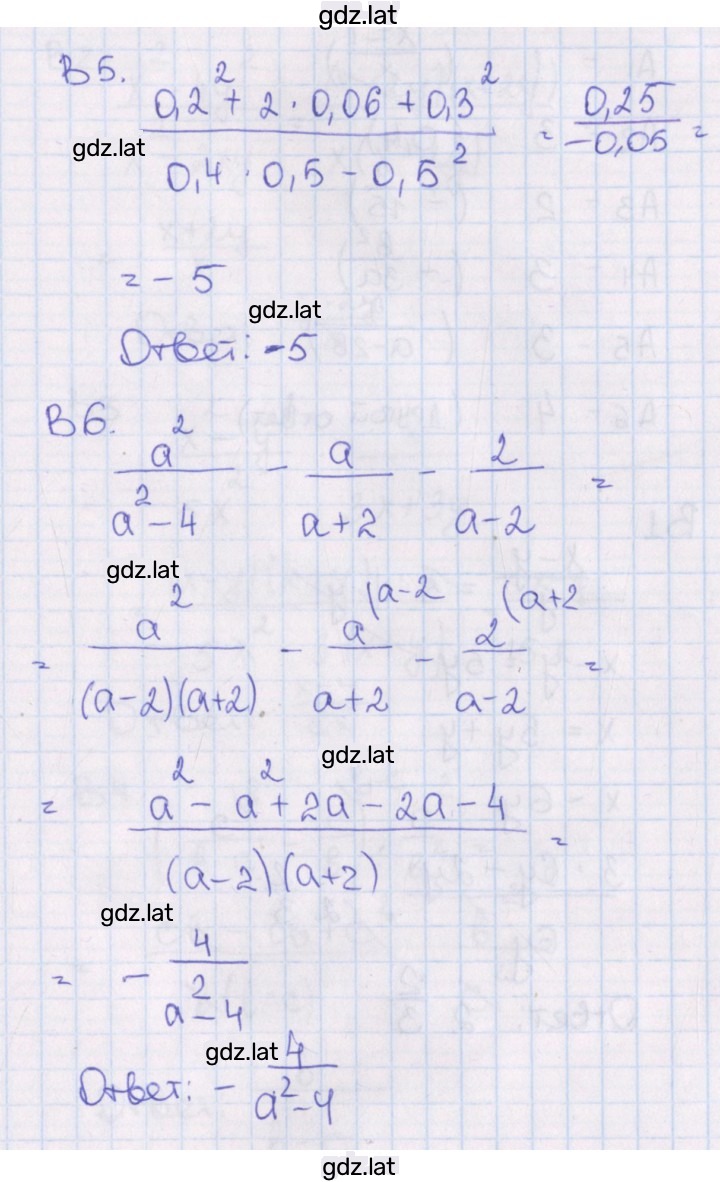 gdz.lat
B5.
(0,2² + 2 · 0,06 + 0,3²) / (0,4 · 0,5 − 0,5²) = 0,25 / −0,05 =
gdz.lat
= − 5
gdz.lat
Ответ: −5
B6.
a² / (a² − 4) − a / (a + 2) − 2 / (a − 2) =
gdz.lat
= a² / (a−2)(a+2) − a (a−2 / (a+2) − 2 (a+2 / (a−2) =
gdz.lat
= (a² − a² + 2a − 2a − 4) / (a−2)(a+2) =
gdz.lat
= − 4 / (a² − 4)
gdz.lat
Ответ: − 4 / (a² − 4)
gdz.lat